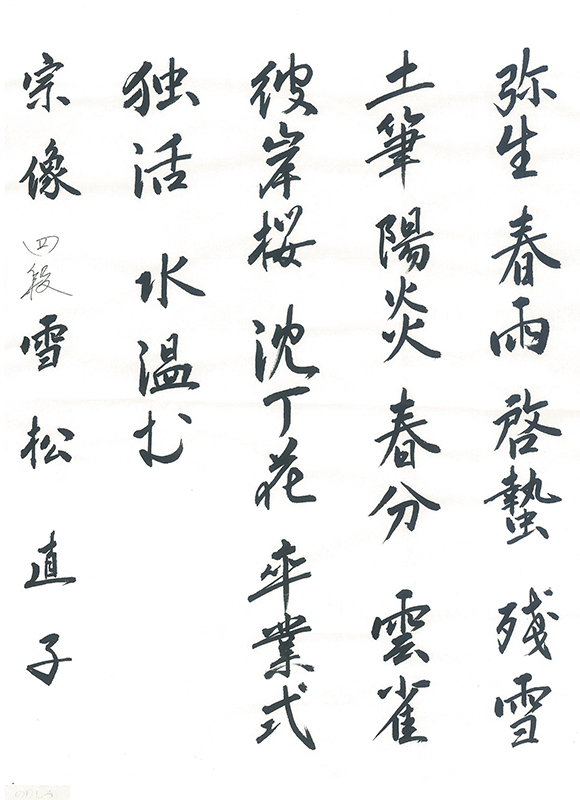 弥生 春雨 啓蟄 残雪
土筆 陽炎 春分 雲雀
彼岸桜 沈丁花 卒業式
独活 水温む
宗像 四段 雪松 直子